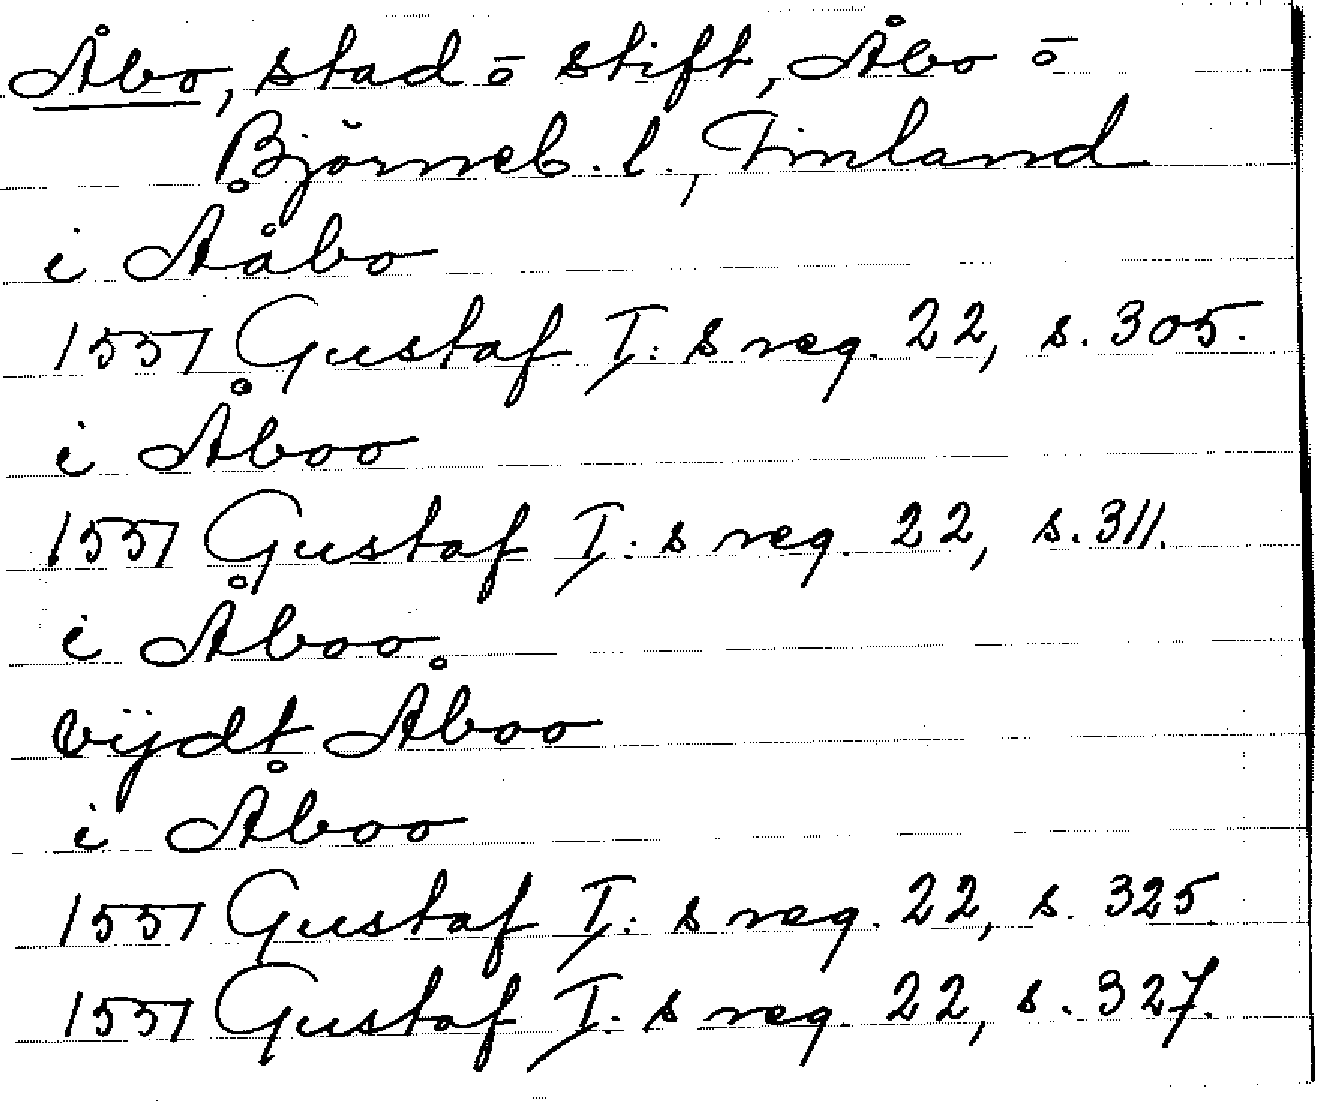 Åbo, stad ō stift, Åbo ō
Björneb. l., Finland
i Ååbo
1557 Gustaf I:s reg. 22, s. 305.
i Åboo
1557 Gustaf I:s reg. 22, s. 311.
i Åboo
vijdt Åboo
i Åboo
1557 Gustaf I:s reg. 22, s. 325.
1557 Gustaf I:s reg. 22, s. 327.